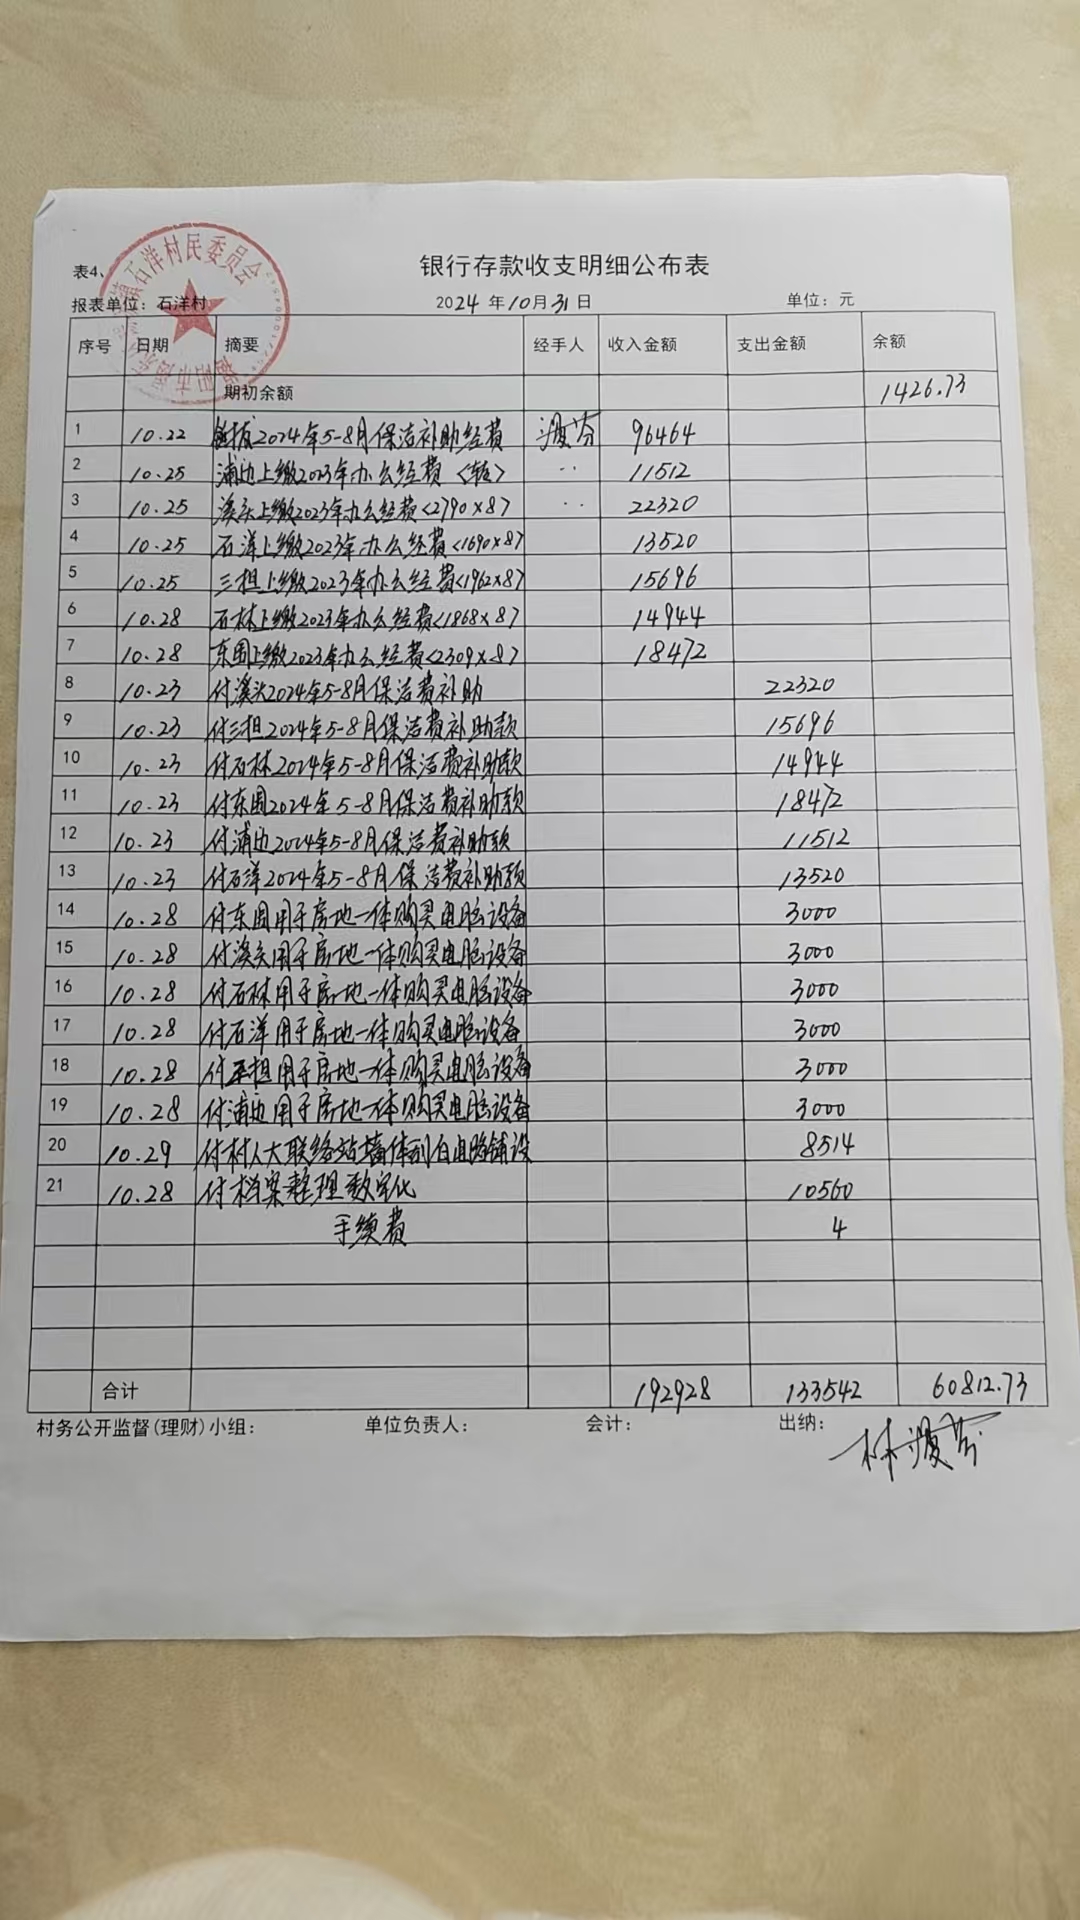 银行存款收支明细公布表
表4、
报表单位：石洋村 2024 年 10 月 31 日 单位：元
石洋村民委员会
序号 日期 摘要 经手人 收入金额 支出金额 余额
期初余额 1426.73
1 10.22 镇拔2024年5-8月保洁补助经费 96464
2 10.25 浦边上缴2023年办公经费 11512
3 10.25 溪头上缴2023年办公经费<2790×8> 22320
4 10.25 石洋上缴2023年办公经费<1690×8> 13520
5 10.25 三担上缴2023年办公经费<1962×8> 15696
6 10.28 石林上缴2023年办公经费<1868×8> 14944
7 10.28 东围上缴2023年办公经费<2309×8> 18472
8 10.23 付溪头2024年5-8月保洁费补助 22320
9 10.23 付三担2024年5-8月保洁费补助款 15696
10 10.23 付石林2024年5-8月保洁费补助款 14944
11 10.23 付东围2024年5-8月保洁费补助款 18472
12 10.23 付浦边2024年5-8月保洁费补助款 11512
13 10.23 付石洋2024年5-8月保洁费补助款 13520
14 10.28 付东围用于房地一体购买电脑设备 3000
15 10.28 付溪头用于房地一体购买电脑设备 3000
16 10.28 付石林用于房地一体购买电脑设备 3000
17 10.28 付石洋用于房地一体购买电脑设备 3000
18 10.28 付三担用于房地一体购买电脑设备 3000
19 10.28 付浦边用于房地一体购买电脑设备 3000
20 10.29 付村人大联络站墙体刮白电路铺设 8514
21 10.28 付档案整理数字化 10560
手续费 4
合计 192928 133542 60812.73
村务公开监督(理财)小组： 单位负责人： 会计： 出纳：